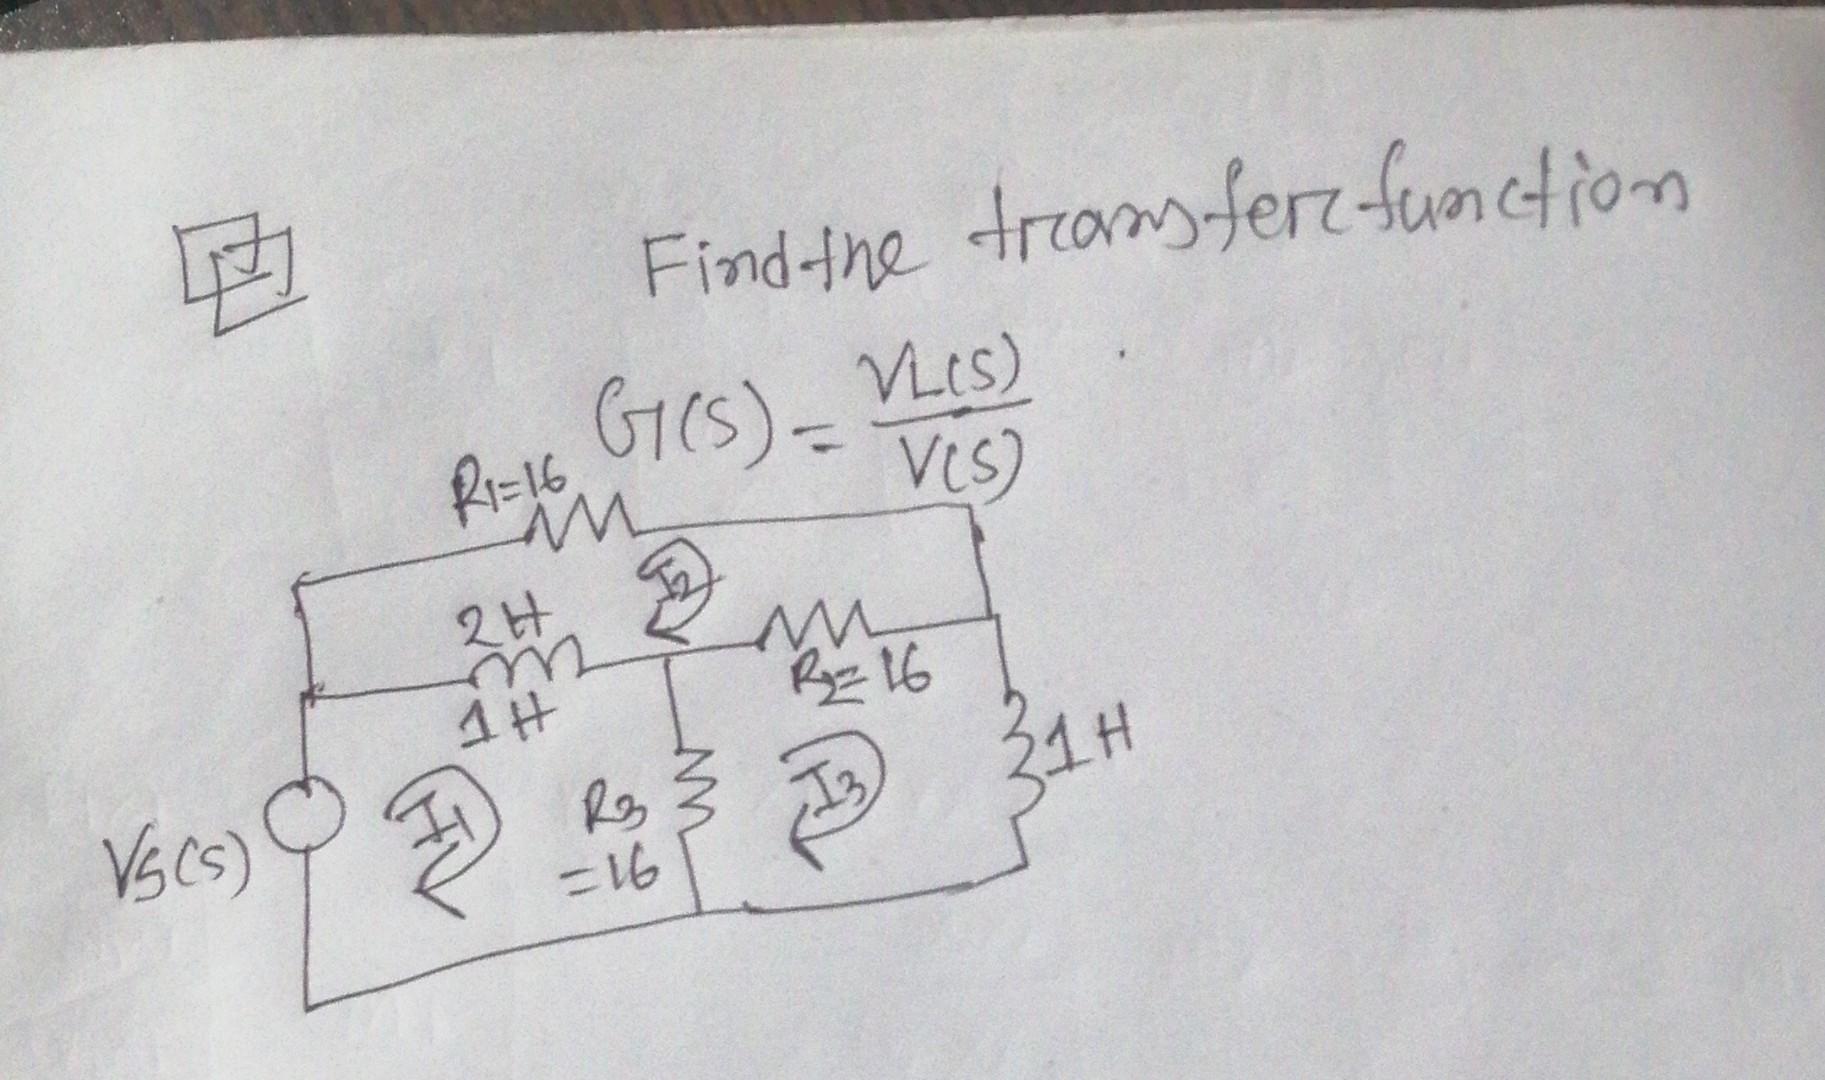 Find the transfer function
G(S) = VL(S)
V(S)
R1=16
I2
2H
R2=16
1H
1H
I1
R3
=16
I3
VS(S)